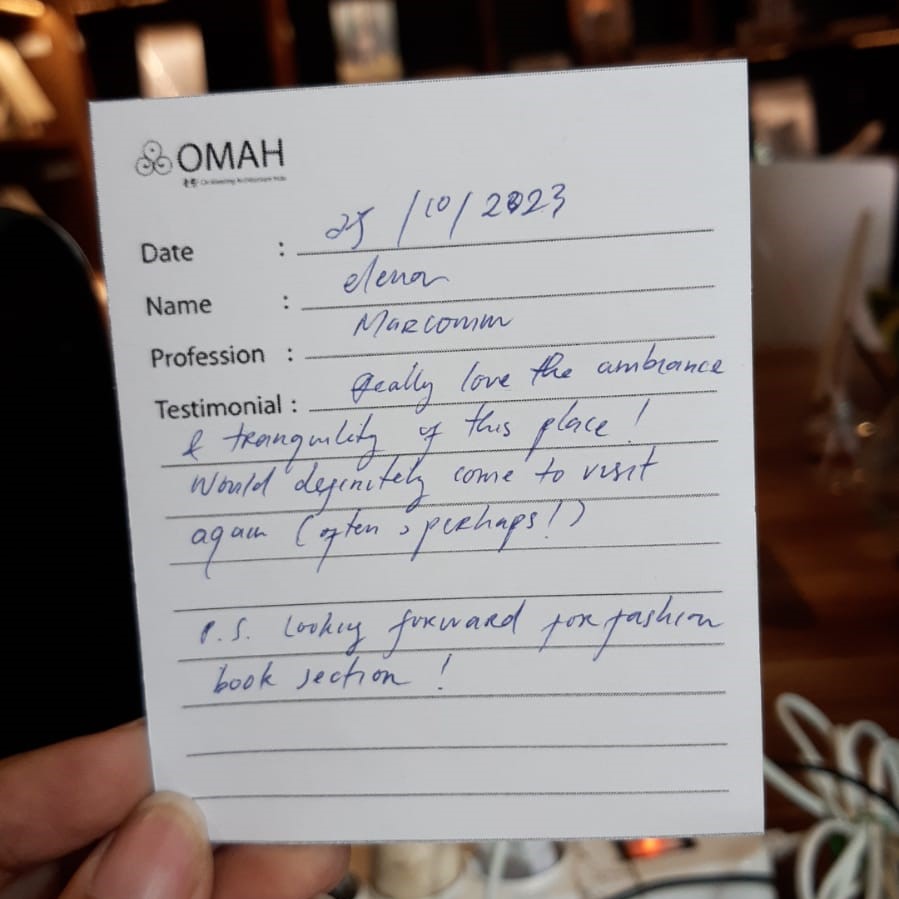 OMAH
Date : 25/10/2023
Name : elena
Profession : Marcomm
Testimonial : Really love the ambiance
& tranquility of this place!
Would definitely come to visit
again (often, perhaps!)
P.S. Looking forward for fashion
book section!